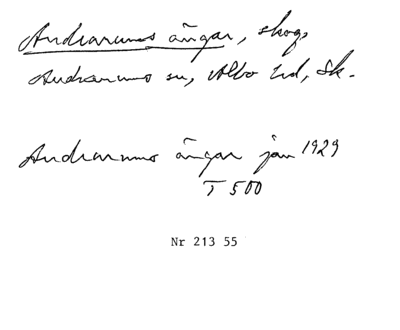 Andrarums ängar, skog,
Andrarums sn, Albo hd, Sk.
Andrarums ängar jan 1929
T 500
Nr 213 55